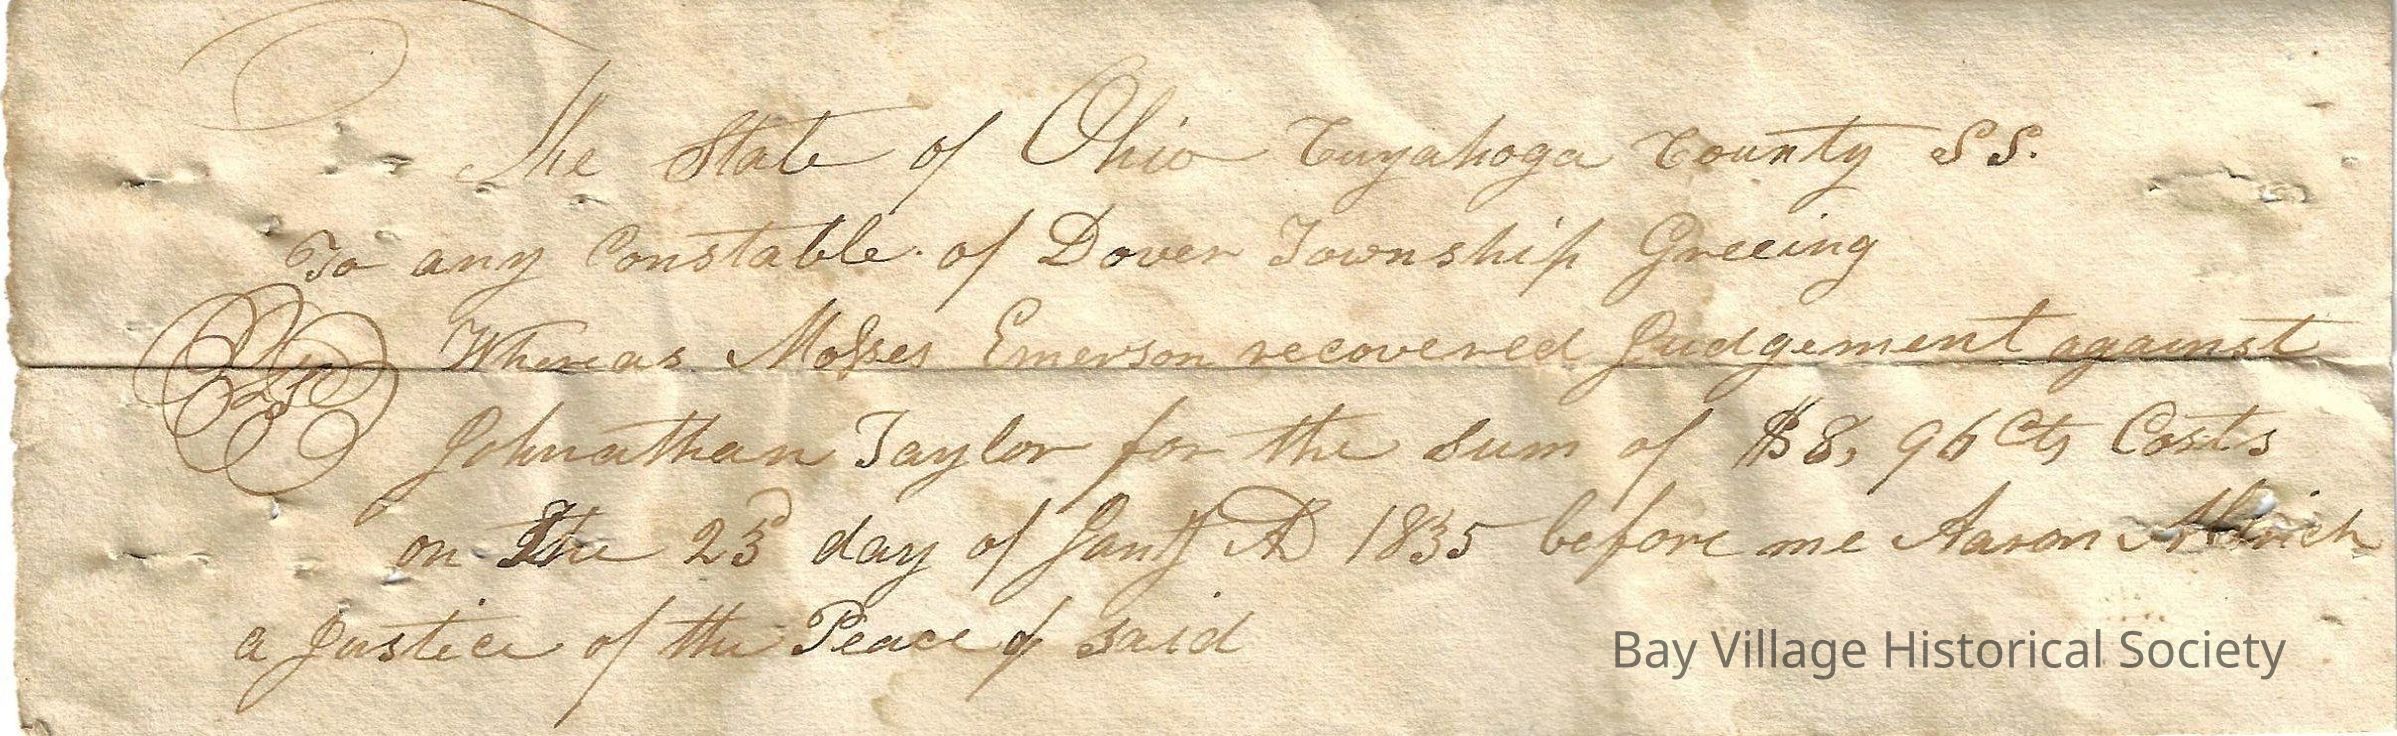 The State of Ohio Cuyahoga County SS.
To any Constable of Dover Township Greeing
Whereas Mosses Emerson recovered Judgement against
Johnathan Taylor for the sum of $8, 96 Cts Costs
on the 23d day of Jany AD 1835 before me Aaron Aldrich
a Justice of the Peace of said
Bay Village Historical Society